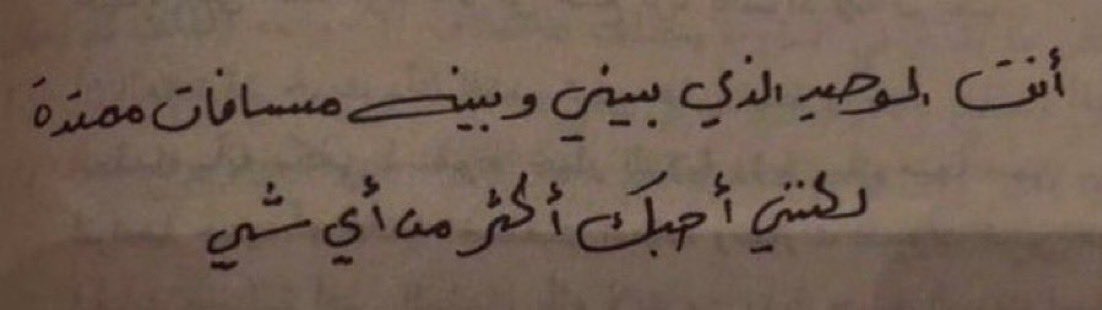 أنت الوحيد الذي بيني وبينك مسافات ممتدة
لكنني أحبك أكثر من أي شي